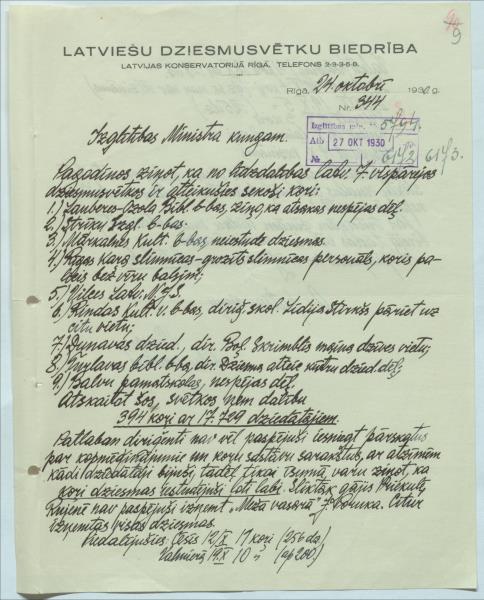 9
LATVIEŠU DZIESMUSVĒTKU BIEDRĪBA
LATVIJAS KONSERVATORIJĀ RĪGĀ. TELEFONS 2-3-3-5-8.
Rīgā, 24. oktobrī 1930 g.
Nr. 344
Izglītības min.
27 OKT 1930
Nr. 6172 6173.
Izglītības Ministra kungam.
Pagodinos ziņot, ka no līdzdalības labu 7. vispārējos
dziesmusvētkos ir atteikušies sekoši kori:
1.) Jaunberes-Ozola Bibl. b-bas, ziņo, ka atsakas nespējas dēļ.
2.) Strīķu Izgl. b-bas.
3.) Mārkalnes Kult. b-bas, neiestudē dziesmas.
4.) Rīgas Kara slimnīcas - grozīts slimnīcas personāls, koris palicis
bez vīru balsīm;
5.) Vilces Latv.
6.) Rindas Kult. v. b-bas, diriģ. skol. Lidija pāriet uz
citu vietu;
7.) Dunavas dzied., dir. Bol. Skrimblis maina dzīves vietu;
8.) Turlavas bibl. b-ba, dir. Dziesma atteic dzied. dēļ;
9.) Balvu pamatskolas, nespējas dēļ.
Atskaitot šos, svētkos ņem dalību
394 kori ar 17.729 dziedātājiem.
Patlaban diriģenti nav vēl paspējuši iesniegt pārskatus
par kopmēģinājumiem un koru sastāvu sarakstus, ar atzīmēm
kādi dziedātāji bijuši, tādēļ tikai īsumā varu ziņot, ka
kori dziesmas iestudējuši ļoti labi. Sliktāk gājis Priekuļi,
kurienē nav paspējuši izņemt "Meža vasarā" J. Poruka. Citur
izņemtas visas dziesmas.
Piedalījušies: Cēsīs 12/X 17 kori (256 dz.)
Valmierā 19/X 10 " (ap 200)